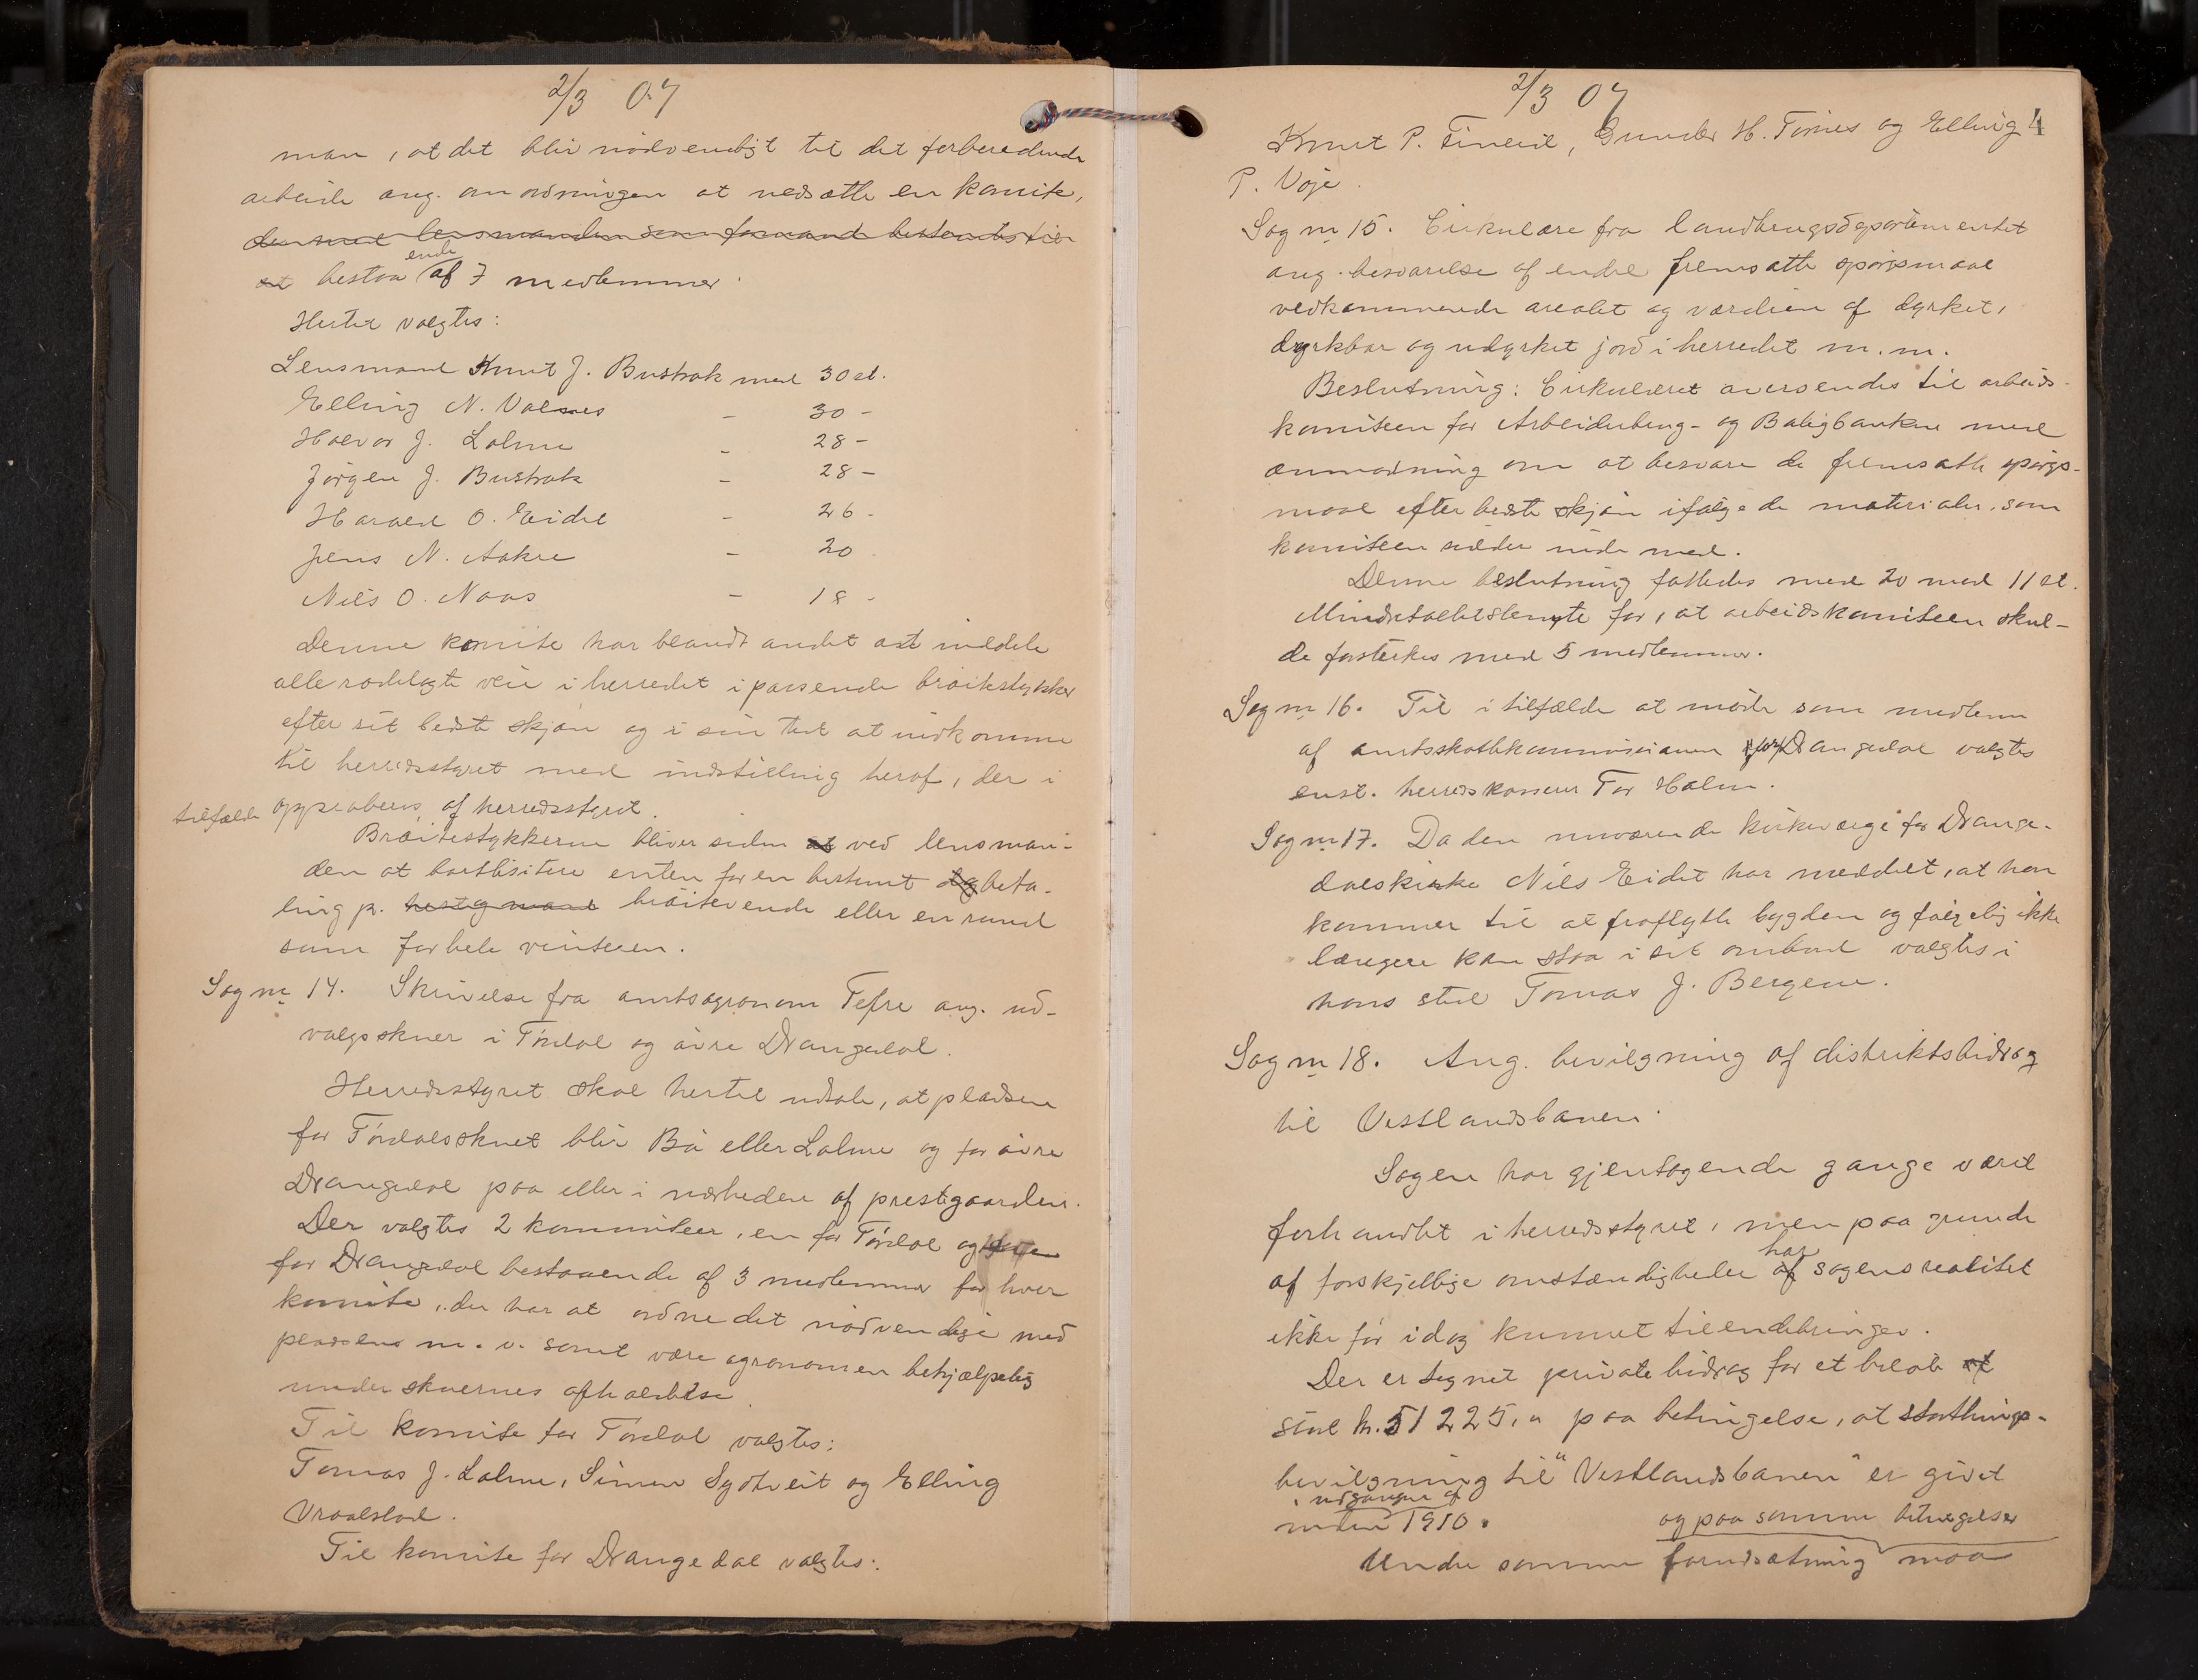 2/3 07
man, at det blir nødvendigt til det forberedende
arbeide ang. anordningen at nedsætte en komite,
der med lensmanden som formand bestemtes til
at bestaaende af 7 medlemmer.
Hertil valgtes:
Lensmand Knut J. Bustrak med 30 st.
Elling N. Valnes - 30 -
Halvor J. Lolme - 28 -
Jørgen J. Bustrak - 28 -
Harald O. Eidet - 26 -
Jens N. Aakre - 20
Nils O. Naas - 18 -
Denne komite har blandt andet at inddele
alle rodelagte veie i herredet i passende brøitestykker
efter sit bedste skjøn og i sin tid at indkomme
til herredsstyret med indstilling heraf, der i
tilfælde approberes af herredsstyret.
Brøitestykkerne bliver siden at ved lensman-
den at bortlisitere enten for en bestemt dag beta-
ling pr. hest og mand brøitevende eller en rund
sum for hele vinteren.
Sag nr 14. Skrivelse fra amtsagronom Tefre ang. ud-
valgsskuer i Tørdal og øvre Drangedal.
Herredsstyret skal hertil udtale, at pladsen
for Tørdalsskuet blir Bø eller Lolme og for øvre
Drangedal paa eller i nærheden af prestegaarden.
Der valgtes 2 kommiteer, en for Tørdal og en
for Drangedal bestaaende af 3 medlemmer for hver
komite, der har at ordne det nødvendige med
pladsens m. v. samt være agronomen behjælpelig
under skuernes afholdelse.
Til komite for Tørdal valgtes:
Tomas J. Lolme, Simen Sydtveit og Elling
Vraalstad.
Til komite for Drangedal valgtes:
2/3 07
4
Knut P. Fineid, Gunder H. Tørnes og Elling
P. Voje.
Sag nr 15. Cirkulære fra landbrugsdepartementet
ang. besvarelse af endel fremsatte spørgsmaal
vedkommende arealet og værdien af dyrket,
dyrkbar og udyrket jord i herredet m. m.
Beslutning: Cirkulæret oversendes til arbeids-
komiteen for Arbeiderbrug- og Boligbanken med
anmodning om at besvare de fremsatte spørgs-
maal efter bedste skjøn ifølge de materialer, som
komiteen sidder inde med.
Denne beslutning fattedes med 20 mod 11 st.
Mindretallet stemte for, at arbeidskomiteen skul-
de forsterkes med 5 medlemmer.
Sag nr 16. Til i tilfælde at møde som medlem
af amtsskattekommisionen for Drangedal valgtes
enst. herredskasserer Tor Holm.
Sag nr 17. Da den nuværende kirkeværge for Drange-
dals kirke Nils Eidet har meddelt, at han
kommer til at fraflytte bygden og følgelig ikke
længere kan staa i sit ombud valgtes i
hans sted Tomas J. Bergene.
Sag nr 18. Ang. bevilgning af distriktsbidrag
til Vestlandsbanen.
Sagen har gjentagende gange været
forhandlet i herredsstyret, men paa grund
af forskjellige omstændigheder har sagens realitet
ikke før idag kunnet tilendebringes.
Der er tegnet private bidrag for et beløb af
stort kr. 51225,00 paa betingelse, at stortings-
bevilgning til "Vestlandsbanen" er givet
inden udgangen af 1910.
og paa samme betingelser
Under samme forudsætning maa